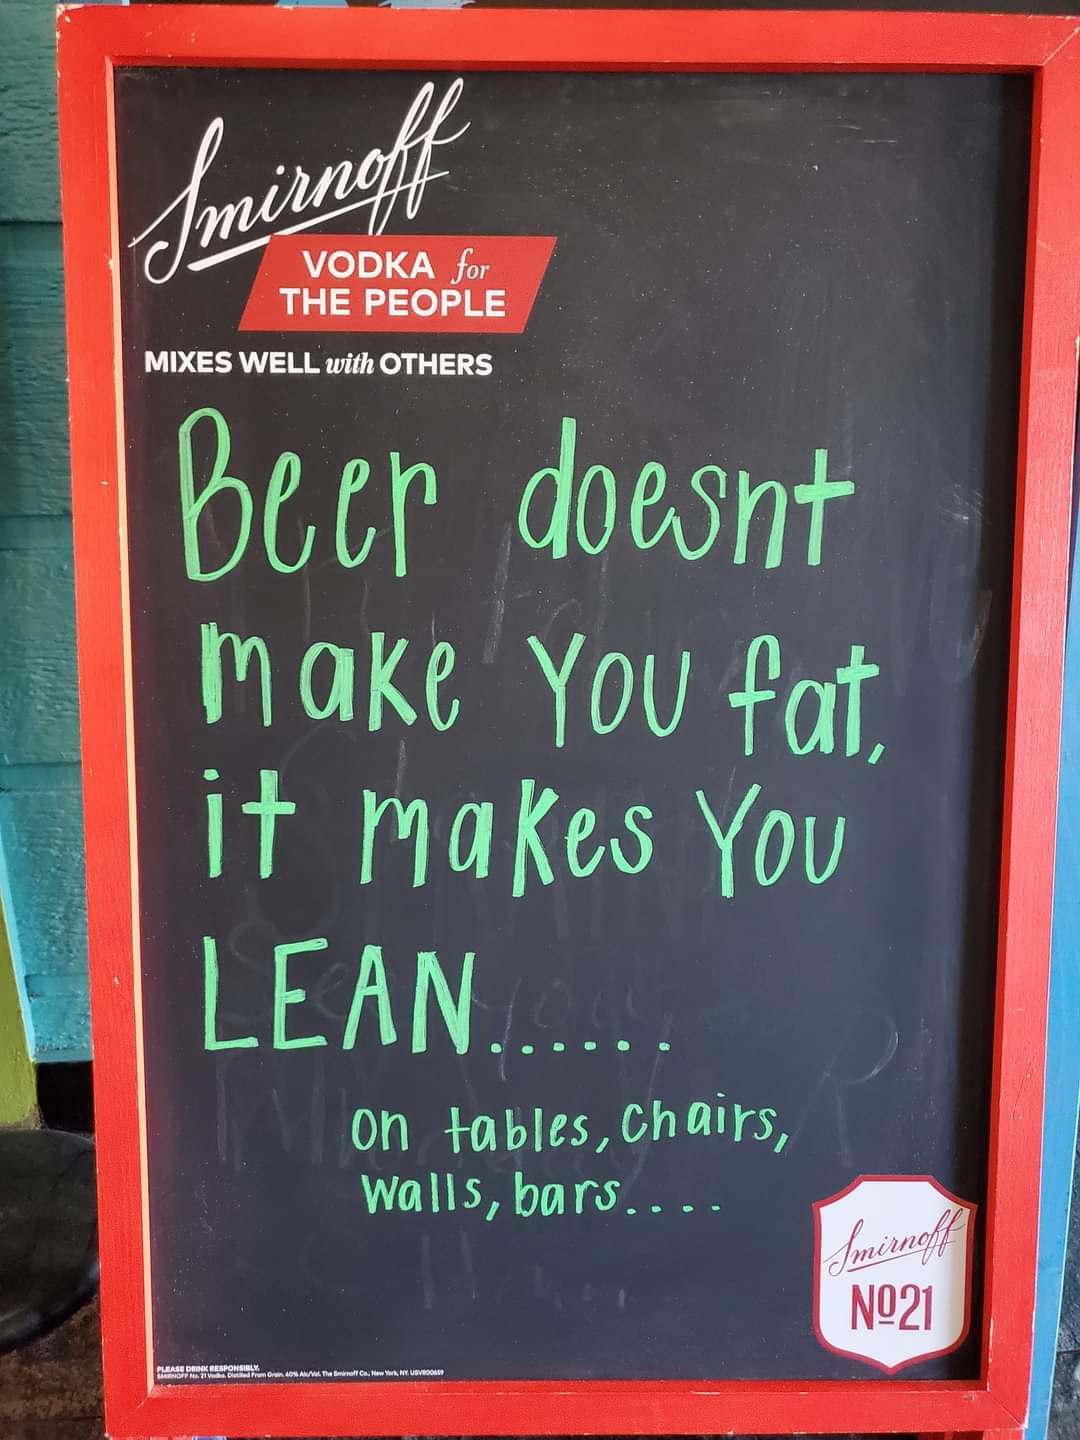 Smirnoff
VODKA for
THE PEOPLE
MIXES WELL with OTHERS
Beer doesnt
make you fat,
it makes you
LEAN......
on tables, chairs,
walls, bars....
Smirnoff
Nº21
PLEASE DRINK RESPONSIBLY.
SMIRNOFF No. 21 Vodka. Distilled From Grain. 40% Alc/Vol. The Smirnoff Co., New York, NY.